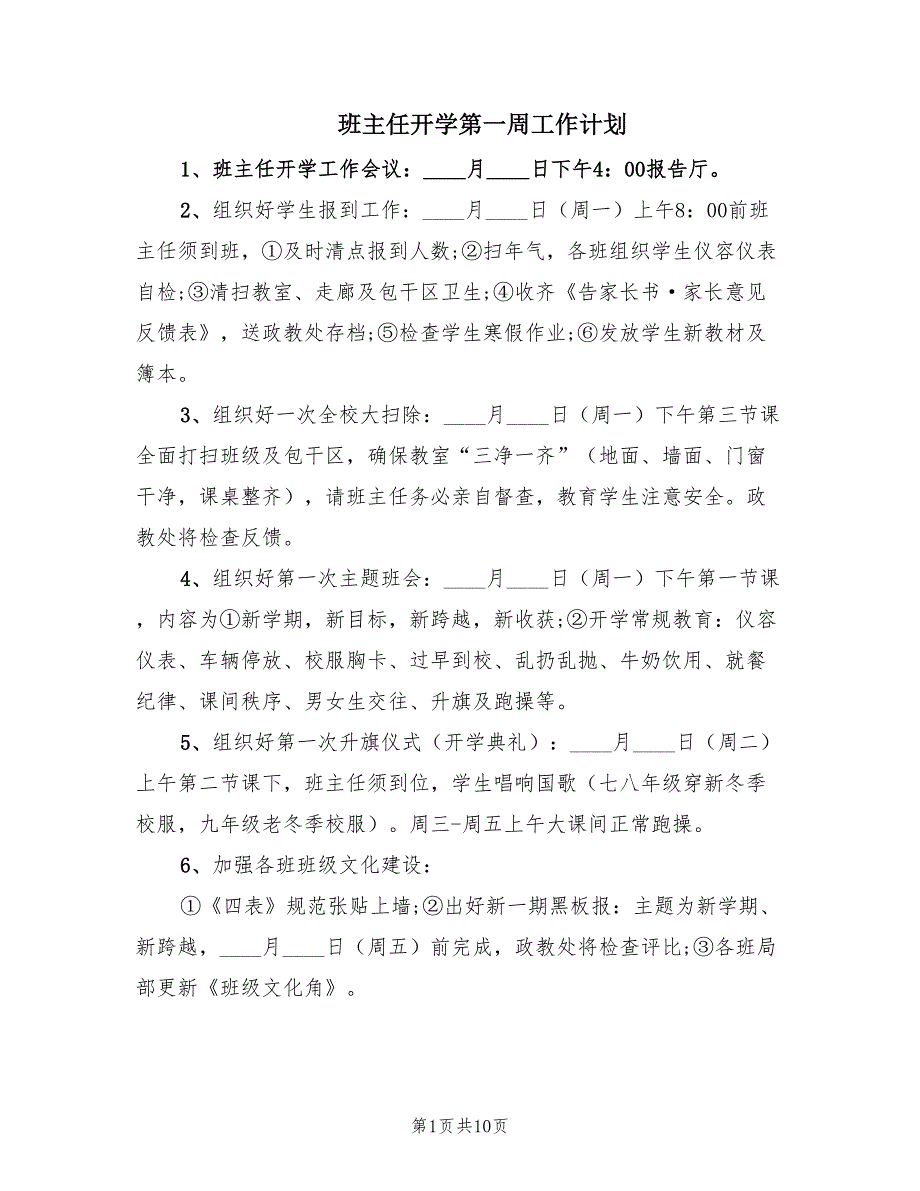 班主任开学第一周工作计划
1、班主任开学工作会议：____月____日下午4：00报告厅。
2、组织好学生报到工作：____月____日（周一）上午8：00前班
主任须到班，①及时清点报到人数;②扫年气，各班组织学生仪容仪表
自检;③清扫教室、走廊及包干区卫生;④收齐《告家长书·家长意见
反馈表》，送政教处存档;⑤检查学生寒假作业;⑥发放学生新教材及
簿本。
3、组织好一次全校大扫除：____月____日（周一）下午第三节课
全面打扫班级及包干区，确保教室“三净一齐”（地面、墙面、门窗
干净，课桌整齐），请班主任务必亲自督查，教育学生注意安全。政
教处将检查反馈。
4、组织好第一次主题班会：____月____日（周一）下午第一节课
，内容为①新学期，新目标，新跨越，新收获;②开学常规教育：仪容
仪表、车辆停放、校服胸卡、过早到校、乱扔乱抛、牛奶饮用、就餐
纪律、课间秩序、男女生交往、升旗及跑操等。
5、组织好第一次升旗仪式（开学典礼）：____月____日（周二）
上午第二节课下，班主任须到位，学生唱响国歌（七八年级穿新冬季
校服，九年级老冬季校服）。周三-周五上午大课间正常跑操。
6、加强各班班级文化建设：
①《四表》规范张贴上墙;②出好新一期黑板报：主题为新学期、
新跨越，____月____日（周五）前完成，政教处将检查评比;③各班局
部更新《班级文化角》。
第1页共10页